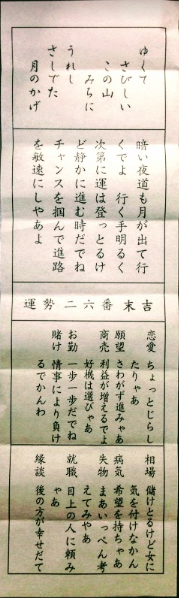 ゆくて
さびしい
この山
みちに
うれし
さしでた
月のかげ
暗い夜道も月が出て行
くでよ 行く手明るく
次第に運は登っとるけ
ど静かに進む時だでね
チャンスを掴んで進路
を敏速にしやあよ
運勢二六番末吉
恋愛 ちょっとじらし
たりゃあ
願望 さわがず進みゃあ
商売 利益が増えるでよ
好機は選びゃあ
お勤 一歩一歩だでね
賭け 情事により負け
るでかんわ
相場 儲けとるけど女に
気を付けなかん
病気 希望を持ちゃあ
失物 まあいっぺん考
えてみやあ
就職 目上の人に頼み
ゃあ
縁談 後の方が幸せだて